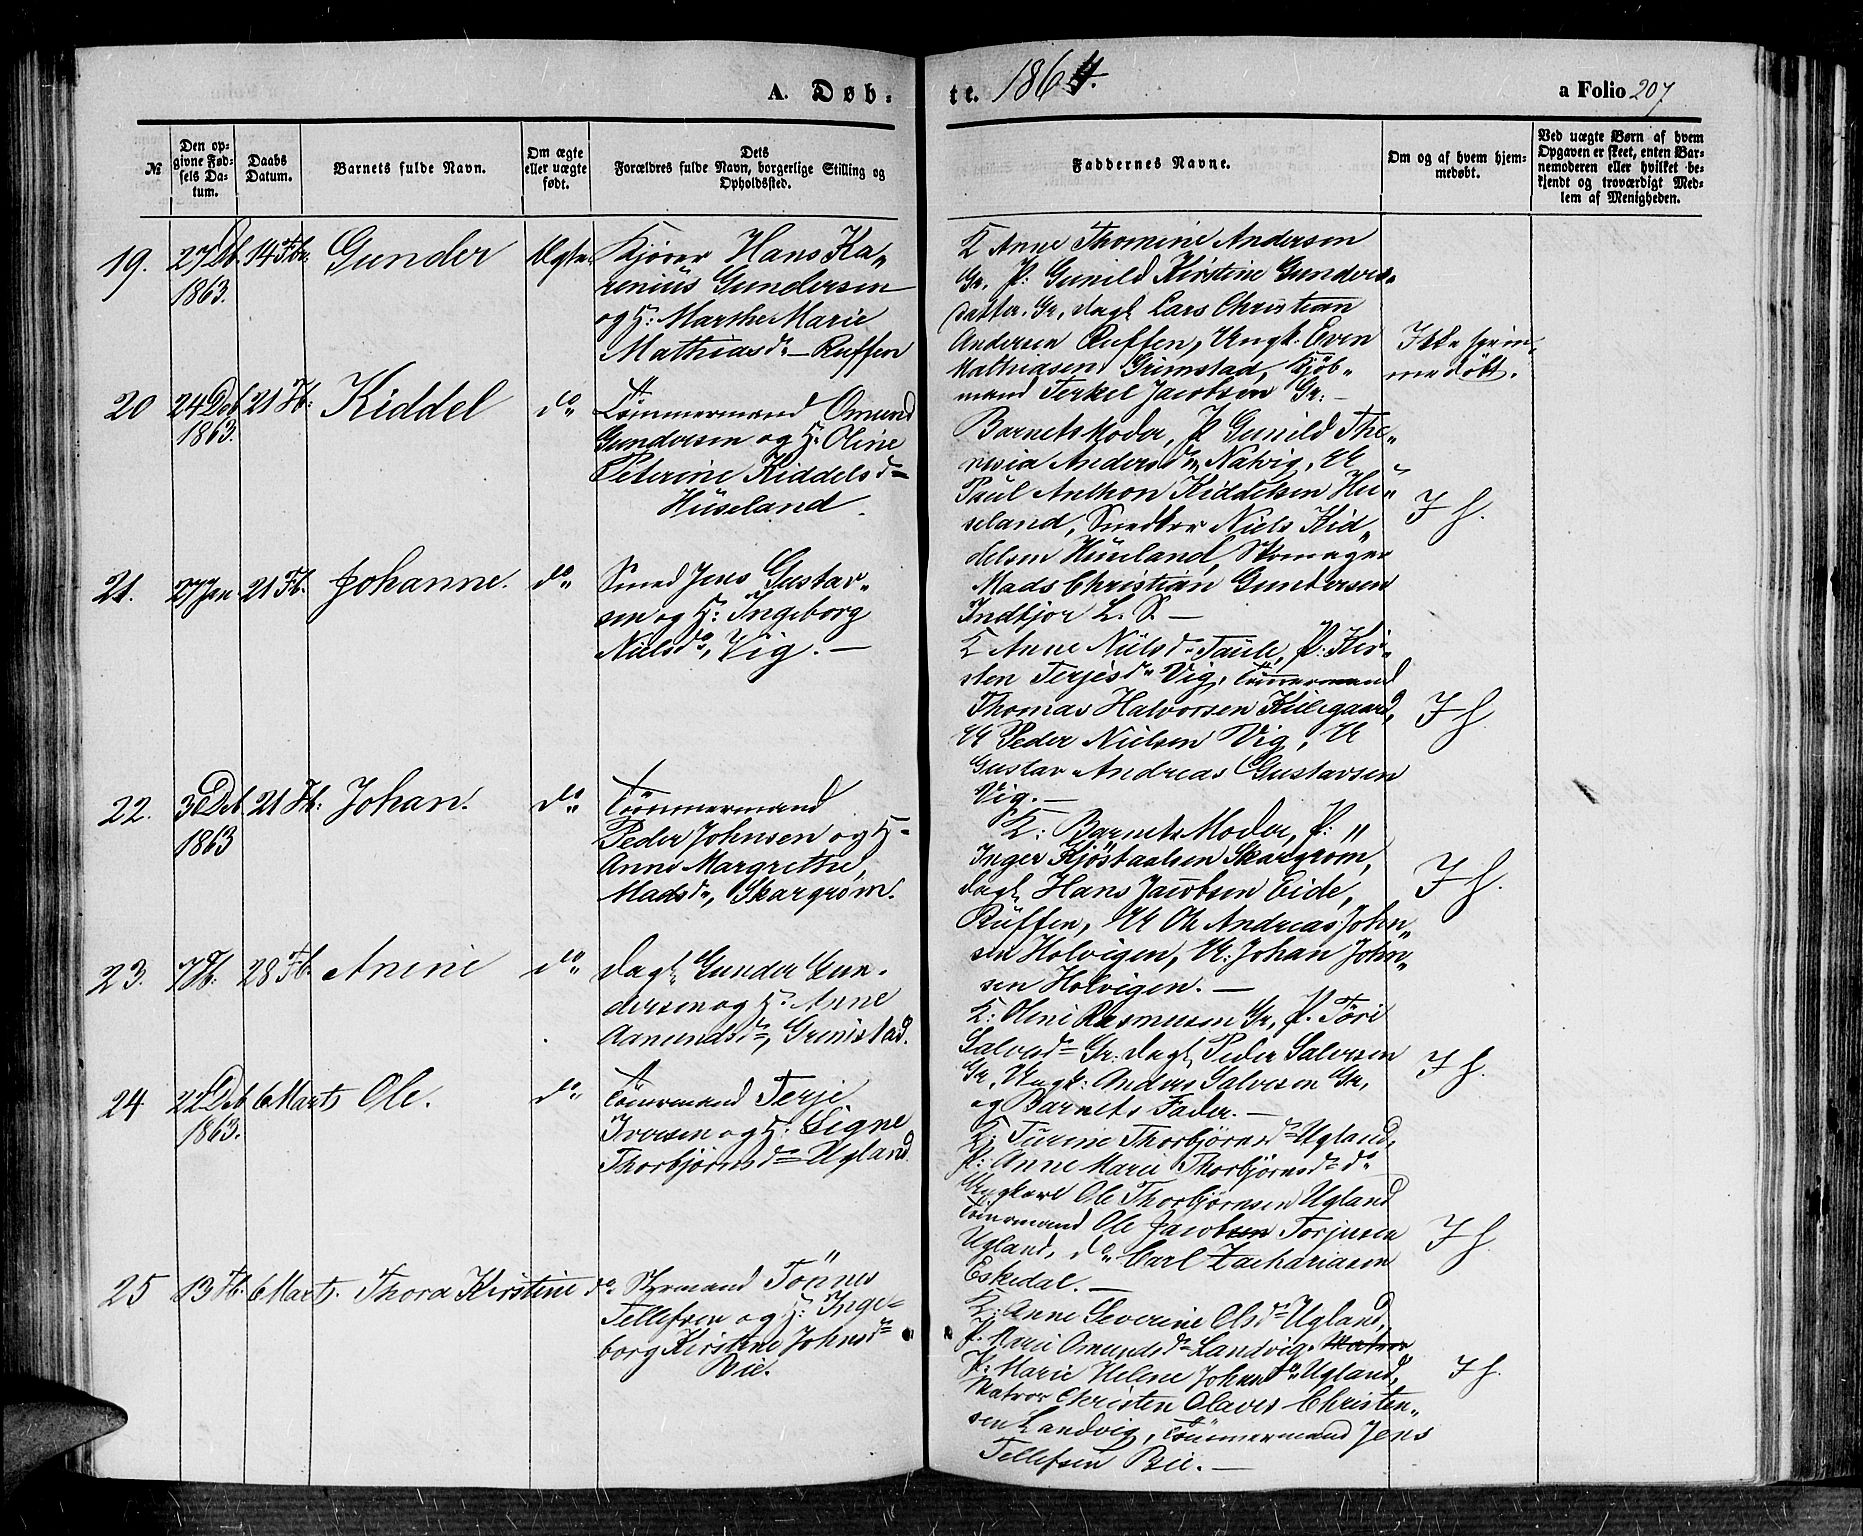 A. Døb-
te. 1864.
a Folio 207
№
Den op-
givne Fød-
sels Da-
tum.
Daabs
Datum.
Barnets fulde Navn.
Om ægte
eller uægte
født.
Dets
Forældres fulde Navn, borgerlige Stilling og
Opholdssted.
Faddernes Navne.
Om og af hvem hjem-
medøbt.
Ved uægte Børn af hvem
Opgaven er skeet, enten Bar-
nemoderen eller hvilket be-
kjendt og troværdigt Med-
lem af Menigheden.
19. 27 Db. 14 Fbr. Gunder Ægte.
1863.
Kjører Hans Ka-
renius Gundersen
og H: Marthe Marie
Mathiasd. – Ruffen
K Anne Thomine Andersen
Gr. P: Gunild Kirstine Gunders-
datter. Gr, dagl Lars Christian
Andersen Ruffen, Ungk. Even
Mathiasen Grimstad, Kjøb-
mand Terkel Jacobsen Gr: –
Ikke hjem-
medøbt.
20 24 Deb 21 Fb: Kiddel do
1863.
Tømmermand Omund
Gundersen og H. Oline
Peterine Kiddelsd=
Huseland.
Barnets Moder, P Gunild The-
resia Andersdr. Natvig, U
Paul Anthon Kiddelsen Hu-
seland, Snedker Niels Kid-
delsen Huseland, Skomager
Mads Christian Gundersen
Indtjor L. S. –
I h.
21. 27 Jan 21 Fb. Johanne. do
Smed Jens Gustav-
sen og H: Ingeborg
Nielsd, Vig. –
K Anne Nielsd. Taule, P: Kir-
sten Terjesd. Vig, Tømmermand
Thomas Halvorsen Kilegaard,
U Peder Nielsen Vig, U
Gustav Andreas Gustavsen
Vig. –
I h
22. 30 Deb. 21 Fb: Johan. do
1863
Tømmermand
Peder Johnsen og H-
Anne Margrethe,
Madsd., Skargrøm.
K: Barnets Moder, P: "
Inger Kjøstaalsen Skargrøm,
dagl Hans Jacobsen Eide,
Ruffen, U Ole Andreas John-
sen Holvigen, U. Johan John-
sen Holvigen. –
I h.
23. 7 Fb. 28 Fb. Anine do
dagl Gunder Gun-
dersen og H. Anne
Aamundsd., Grimstad.
K: Oline Rasmusen Gr, P. Tøri
Salvesd= Gr. dagl, Peder Salvesen
Gr, Ungk: Anders Salvesen Gr,
og Barnets Fader. –
I h.
24 22 Deb 6 Marts Ole. do
1863.
Tømermand Terje
Iversen og H: Signe
Thorbjørnsd= Ugland.
K: Turine Thorbjørnsd= Ugland,
P: Anne Marie Thorbjørnsd= do
Ungkarl Ole Thorbjørnsen Ugland
Tømermand Ole Jacobsen Torjusen
Ugland, do Carl Zachariasen
Eskedal. –
I h.
25 13 Fb. 6 Marts. Thora Kirstine do
Styrmand Tönnes
Tellefsen og H: Inge-
borg Kirstine Johnsd=
Bie.
K: Anne Severine Olsd= Ugland,
P. Marie Omundsd= Landvig. Matros
P: Marie Helene Johansd. Ugland,
Matros Christen Olaves Christen-
sen Landvig, Tömmermand Jens
Tellefsen Bie. –
I h.